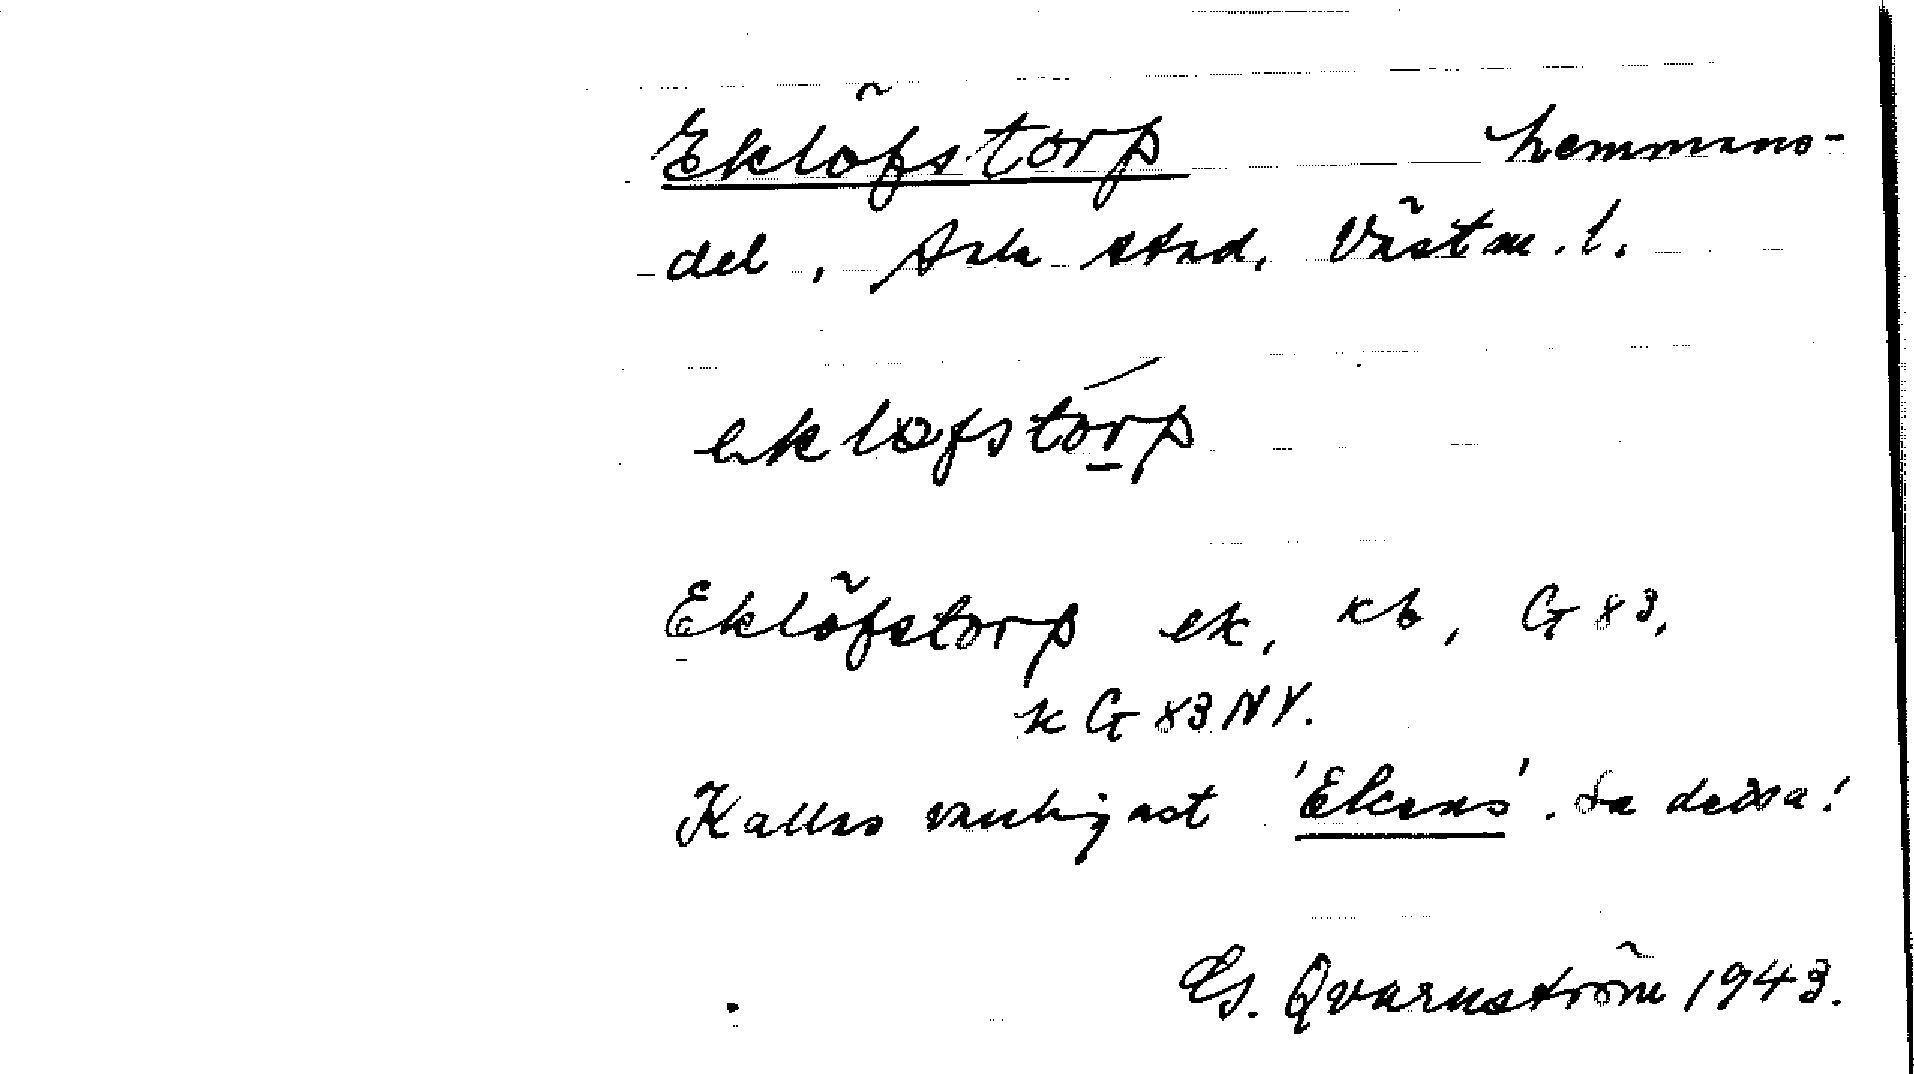 Eklöfstorp hemmans-
del, Sala stad, Västm. l.
eklöfstorp
Eklöfstorp ek, kb, G 83,
k G 83 NV.
Kallas vanligast 'Ekens'. Se dessa!
G. Qvarnström 1943.